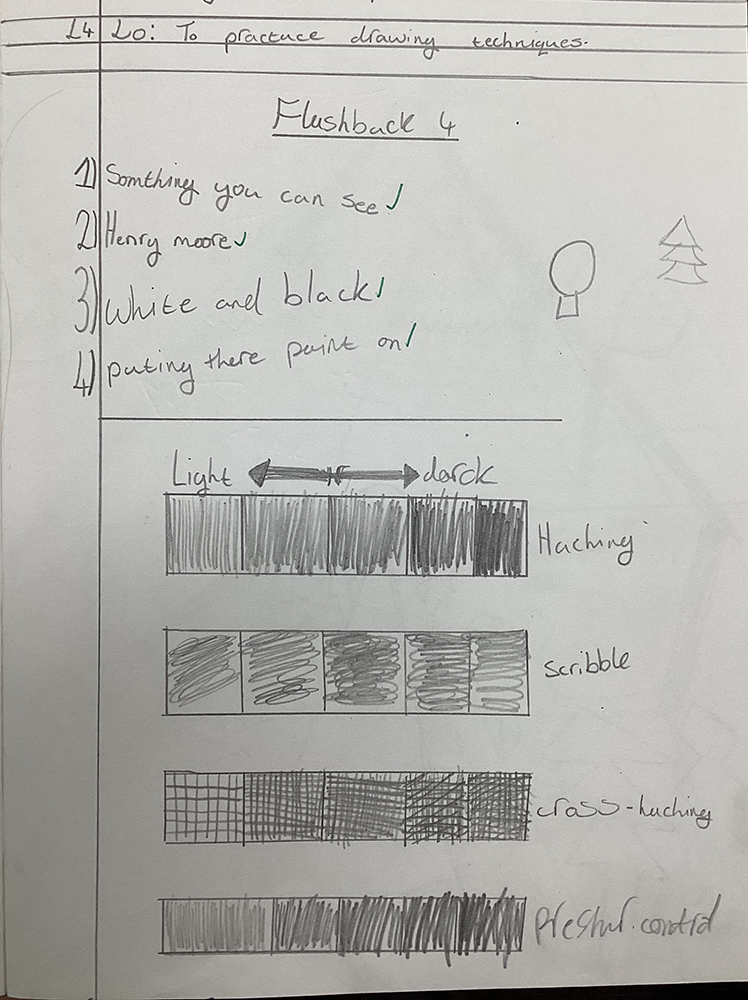 L4 Lo: To practuce drawing techniques.
Flashback 4
1) Somthing you can see
2) Henry moore
3) White and black
4) puting there paint on
Light darck
Haching
scribble
crass-haching
Preshur.control